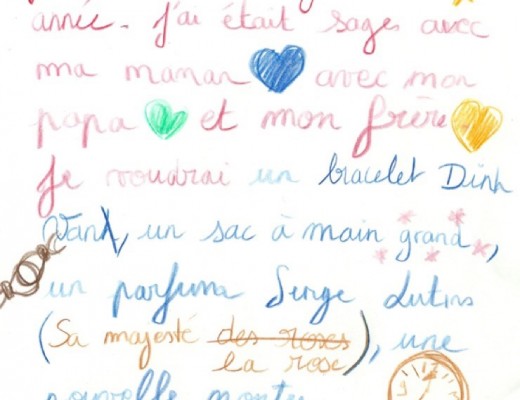 année. j'ai était sages avec
ma maman avec mon
papa et mon frère
Je voudrai un bracelet Dinh
Van, un sac à main grand,
un parfum Serge Lutins
(Sa majesté des roses), une
la rose
nouvelle montre